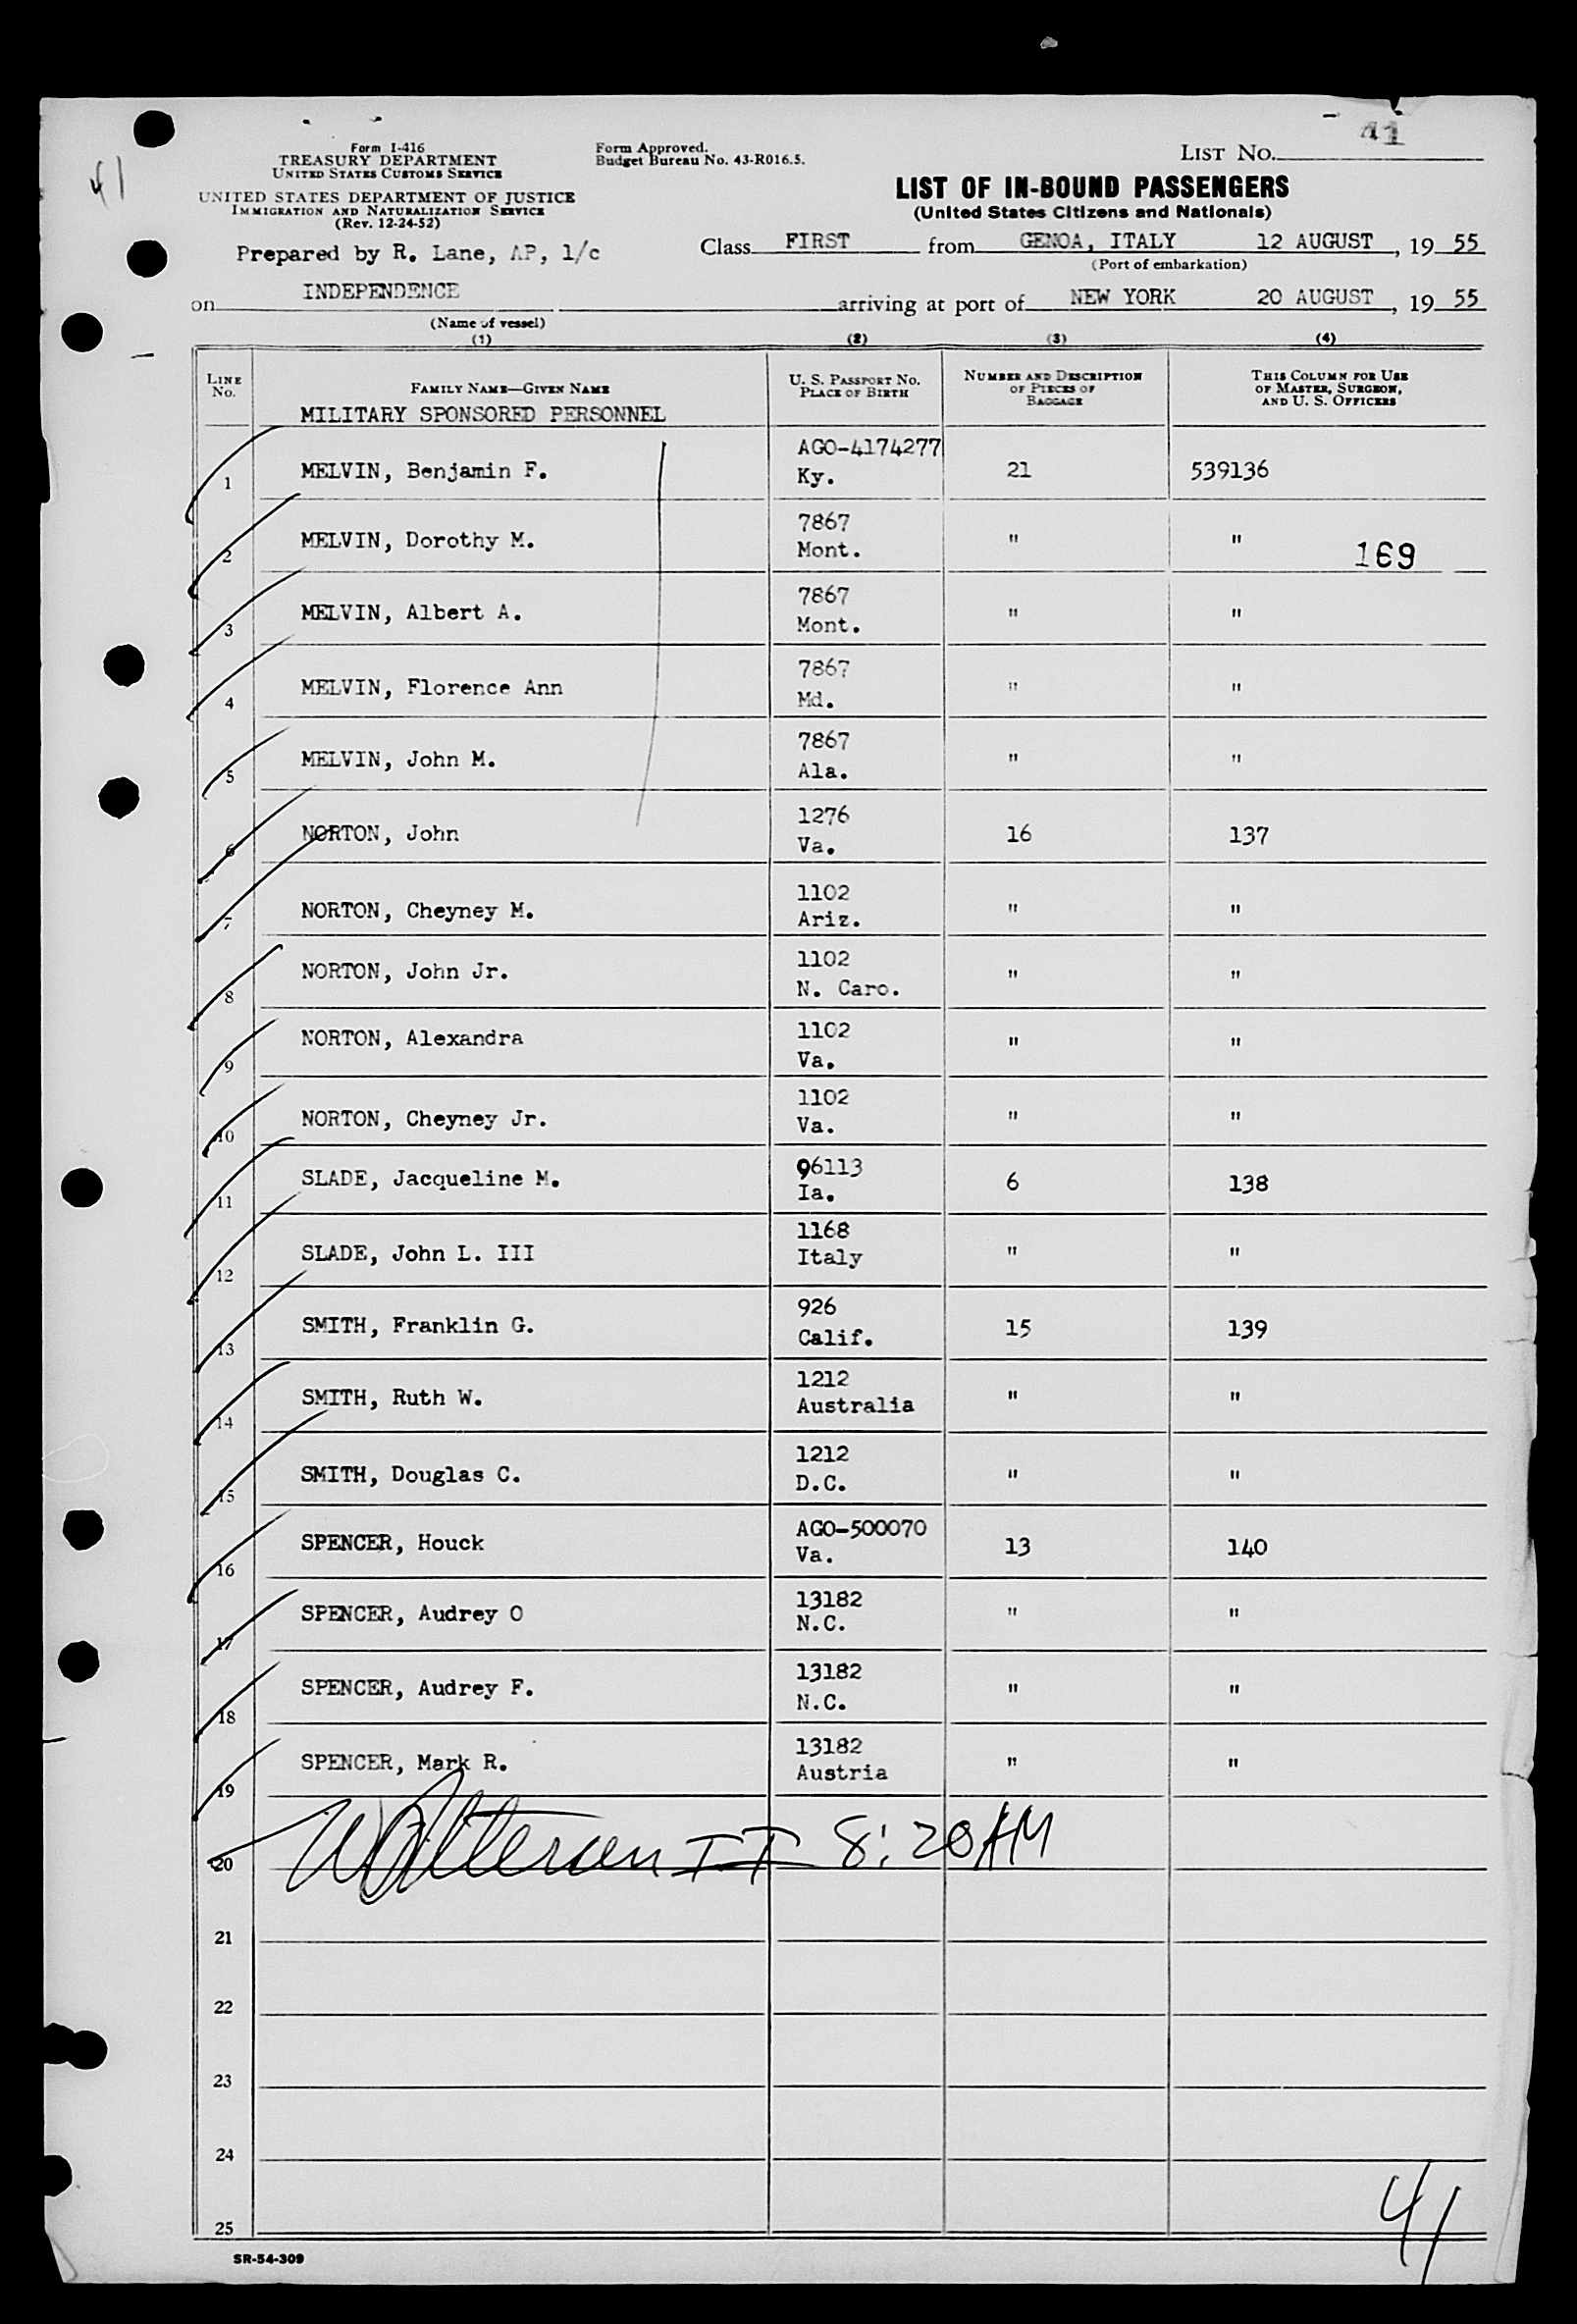 41
41
Form I-416
TREASURY DEPARTMENT
UNITED STATES CUSTOMS SERVICE
UNITED STATES DEPARTMENT OF JUSTICE
IMMIGRATION AND NATURALIZATION SERVICE
(Rev. 12-24-52)
Form Approved.
Budget Bureau No. 43-R016.5.
LIST NO.
LIST OF IN-BOUND PASSENGERS
(United States Citizens and Nationals)
Prepared by R. Lane, AP, 1/c
Class FIRST from GENOA, ITALY 12 AUGUST, 19 55
(Port of embarkation)
on INDEPENDENCE arriving at port of NEW YORK 20 AUGUST, 19 55
(Name of vessel)
(1) (2) (3) (4)
LINE NO. FAMILY NAME—GIVEN NAME U. S. PASSPORT NO. PLACE OF BIRTH NUMBER AND DESCRIPTION OF PIECES OF BAGGAGE THIS COLUMN FOR USE OF MASTER, SURGEON, AND U. S. OFFICERS
MILITARY SPONSORED PERSONNEL
1 MELVIN, Benjamin F. AGO-4174277 Ky. 21 539136
2 MELVIN, Dorothy M. 7867 Mont. " " 169
3 MELVIN, Albert A. 7867 Mont. " "
4 MELVIN, Florence Ann 7867 Md. " "
5 MELVIN, John M. 7867 Ala. " "
6 NORTON, John 1276 Va. 16 137
7 NORTON, Cheyney M. 1102 Ariz. " "
8 NORTON, John Jr. 1102 N. Caro. " "
9 NORTON, Alexandra 1102 Va. " "
10 NORTON, Cheyney Jr. 1102 Va. " "
11 SLADE, Jacqueline M. 96113 Ia. 6 138
12 SLADE, John L. III 1168 Italy " "
13 SMITH, Franklin G. 926 Calif. 15 139
14 SMITH, Ruth W. 1212 Australia " "
15 SMITH, Douglas C. 1212 D.C. " "
16 SPENCER, Houck AGO-500070 Va. 13 140
17 SPENCER, Audrey O 13182 N.C. " "
18 SPENCER, Audrey F. 13182 N.C. " "
19 SPENCER, Mark R. 13182 Austria " "
20 II 8:20 AM
21
22
23
24
25
41
SR-54-309